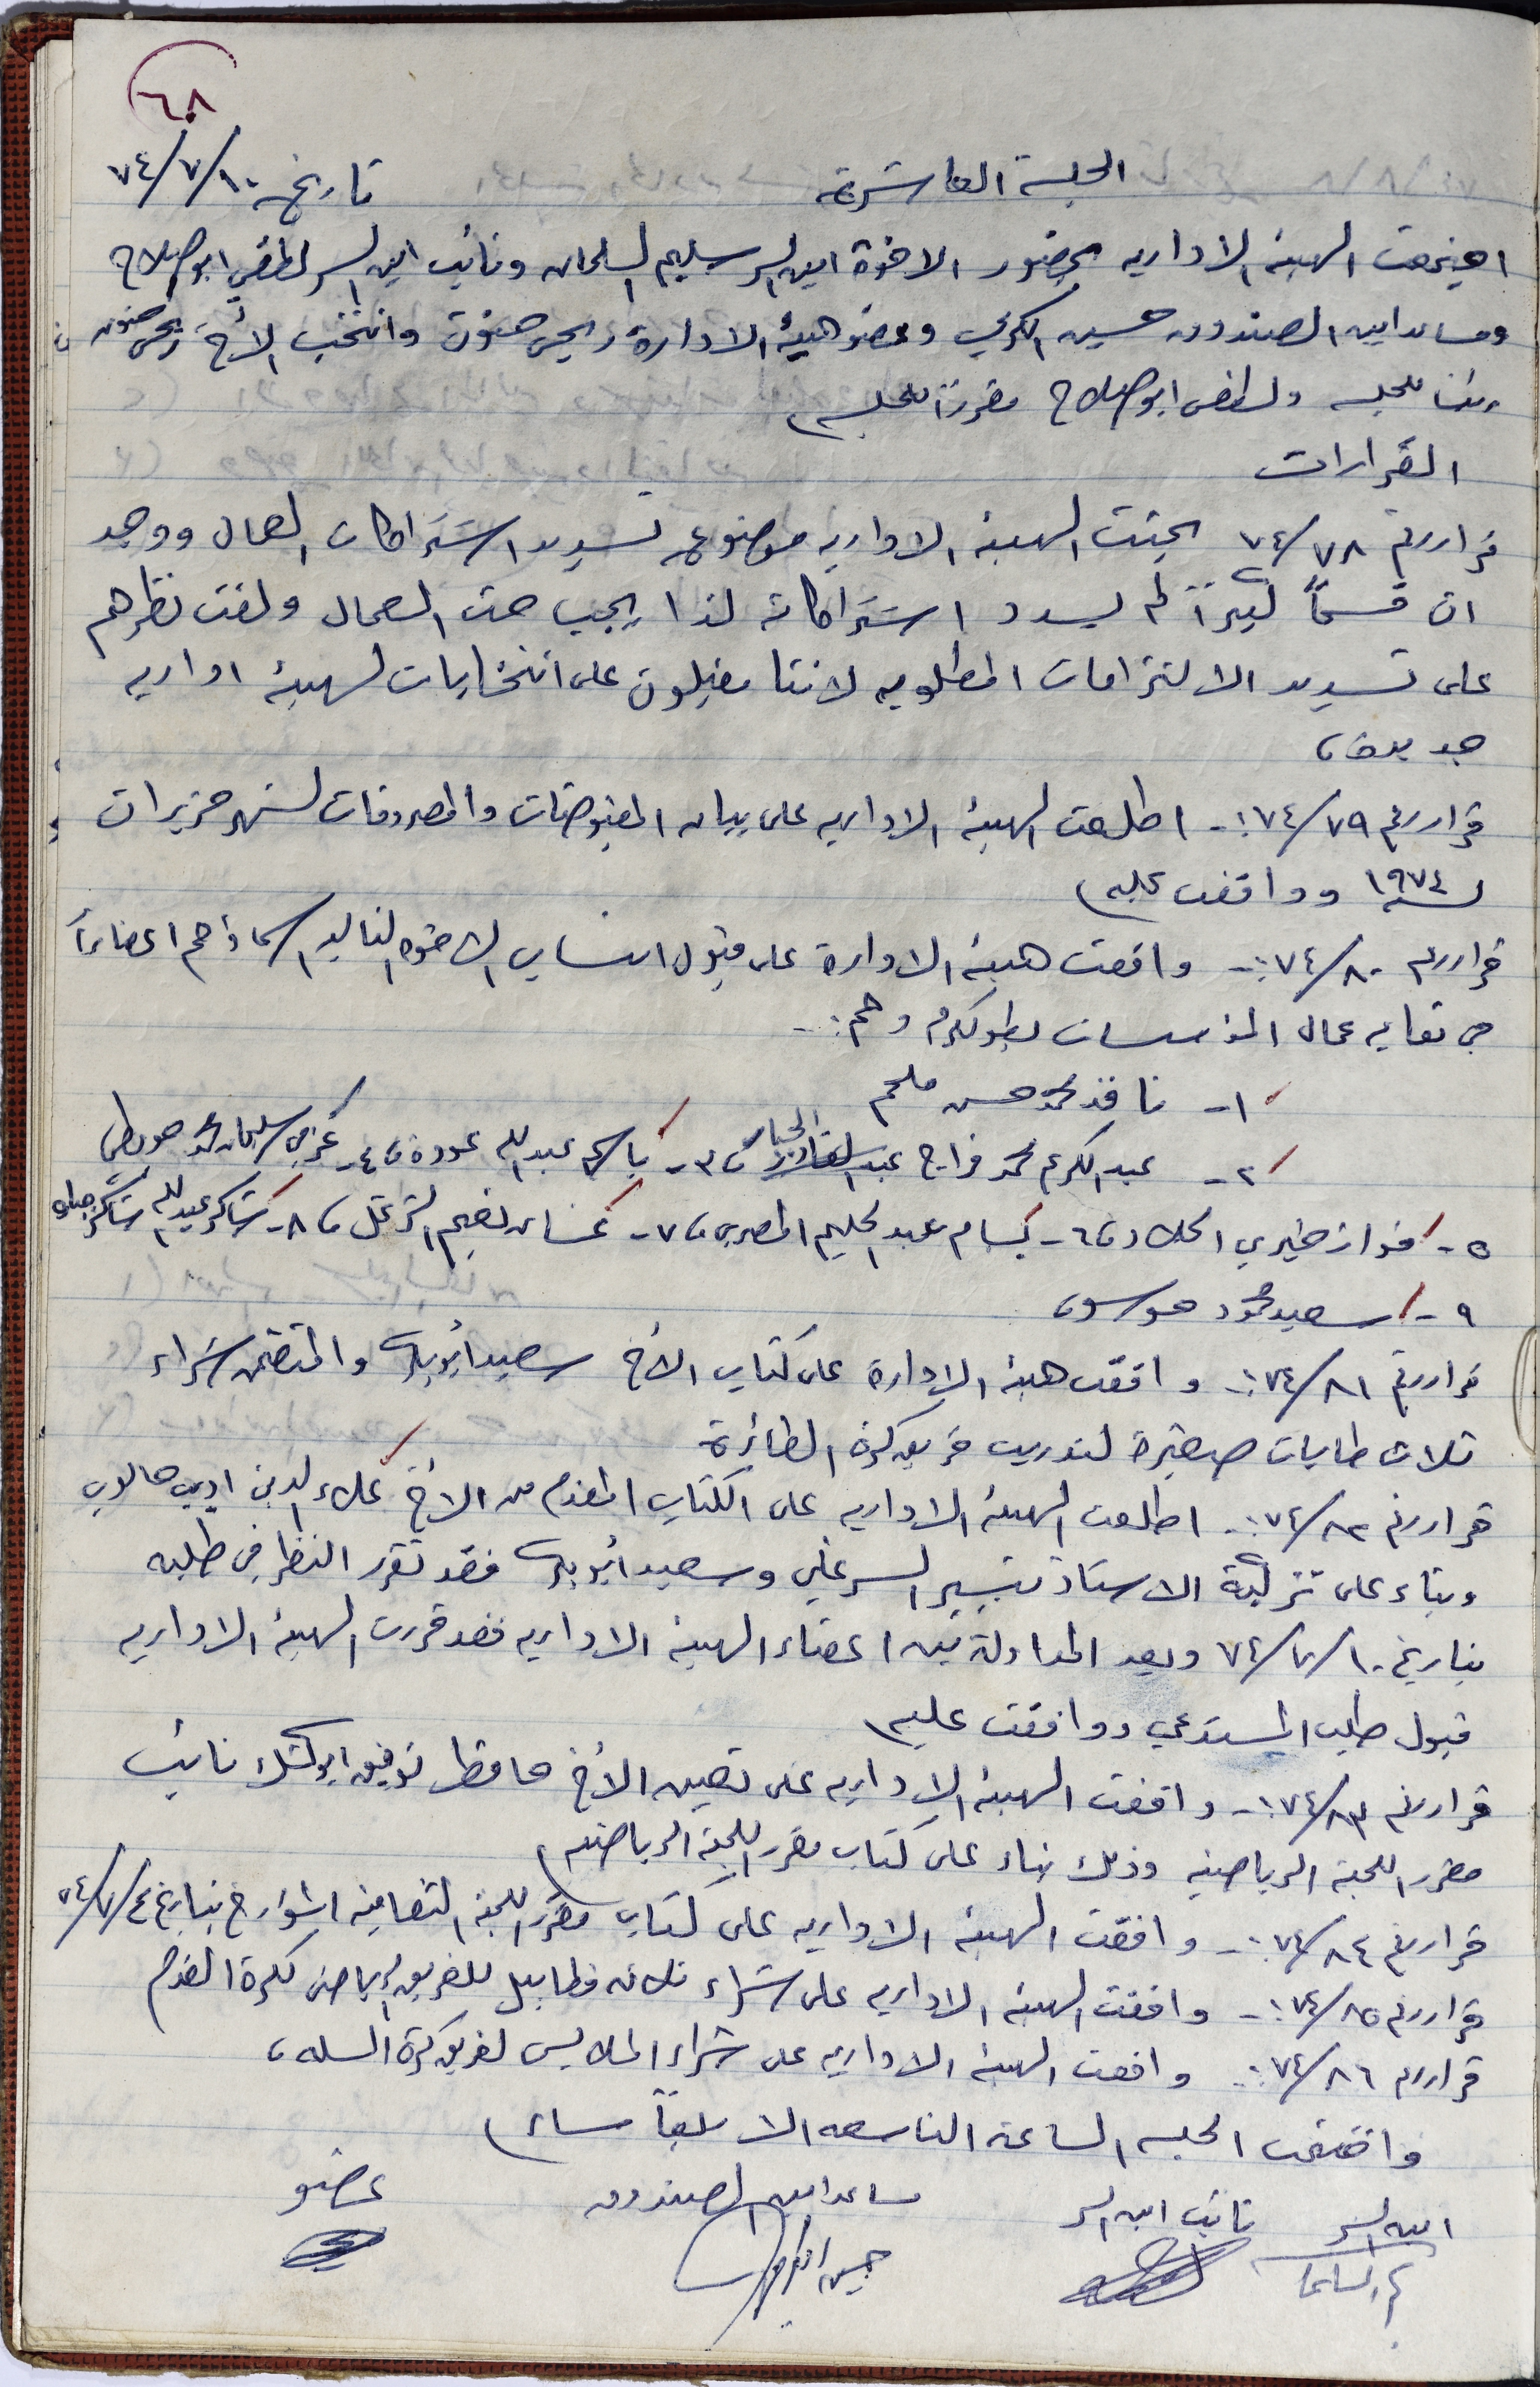 ٦٨
الجلسة العاشرة تاريخ ٧٤/٧/١٠
اجتمعت الهيئه الاداريه بحضور الاخوة امين السر سليم السلمان ونائب امين السر لطفي ابو صلاح
ومساعد امين الصندوق حسين الكرمي وعضو هيئة الادارة يحيى حنون وانتخب الأخ يحيى حنون
رئيسا للجلسه ولطفي ابو صلاح مقررا للجلسه،
القرارات
قرار رقم ٧٤/٧٨ بحثت الهيئه الاداريه موضوع تسديد اشتراكات العمال ووجد
ان قسماً كبيراً لم يسدد اشتراكاته لذا يجب حث العمال ولفت نظرهم
على تسديد الالتزامات المطلوبه لاننا مقبلون على انتخابات لهيئة اداريه
جديده،
قرار رقم ٧٤/٧٩:- اطلعت الهيئه الاداريه على بيان المقبوضات والمصروفات لشهر حزيران
لسنة ١٩٧٤ ووافقت عليه،
قرار رقم ٧٤/٨٠:- وافقت هيئة الادارة على قبول انتساب الاخوه التاليه اسماؤهم اعضاءاً
في نقابه عمال المؤسسات بطولكرم وهم:-
١- نافذ محمد حسن ملحم
٢- عبد الكريم محمد فراج عبد الجبار، ٣- باسم عبدالله عودة، ٤- عزمي سليمان محمد حويطي
٥- فواز خيري الحلاد، ٦- بسام عبد الحليم المصري، ٧- غسان نعيم الشرعمل، ٨- شاكر عبدالله شاكر
٩- سعيد محمود موسى،
قرار رقم ٧٤/٨١:- وافقت هيئه الادارة على كتاب الأخ سعيد ابو بكر والمتضمن شراء
ثلاث طابات صغيرة لتدريب فريق كرة الطائرة
قرار رقم ٧٤/٨٢:- اطلعت الهيئه الاداريه على الكتاب المقدم من الأخ علاء الدين اديب جالوب
وبناء على تزكية الاستاذ تيسير السرغلي وسعيد ابو بكر فقد تقرر النظر في طلبه
بتاريخ ٧٤/٧/١٠ وبعد المداولة بين اعضاء الهيئه الاداريه فقد قررت الهيئه الاداريه
قبول طلب المستدعي ووافقت عليه،
قرار رقم ٧٤/٨٣:- وافقت الهيئه الاداريه على تعيين الأخ حافظ توفيق ابو كشك نائب
مقرر اللجنه الرياضيه وذلك بناء على كتاب مقرر اللجنه الرياضيه،
قرار رقم ٧٤/٨٤:- وافقت الهيئه الاداريه على كتاب مقرر اللجنه الثقافيه المؤرخ بتاريخ ٧٤/٧/٤
قرار رقم ٧٤/٨٥:- وافقت الهيئه الاداريه على شراء ثلاثه فطابيل للفريق الرياضي لكرة القدم
قرار رقم ٧٤/٨٦:- وافقت الهيئه الاداريه على شراء الملابس لفريق كرة السله،
واختتمت الجلسه الساعه التاسعه الا ربعاً مساء،
امين السر نائب امين السر مساعد امين الصندوق عضو
حسين الكرمي